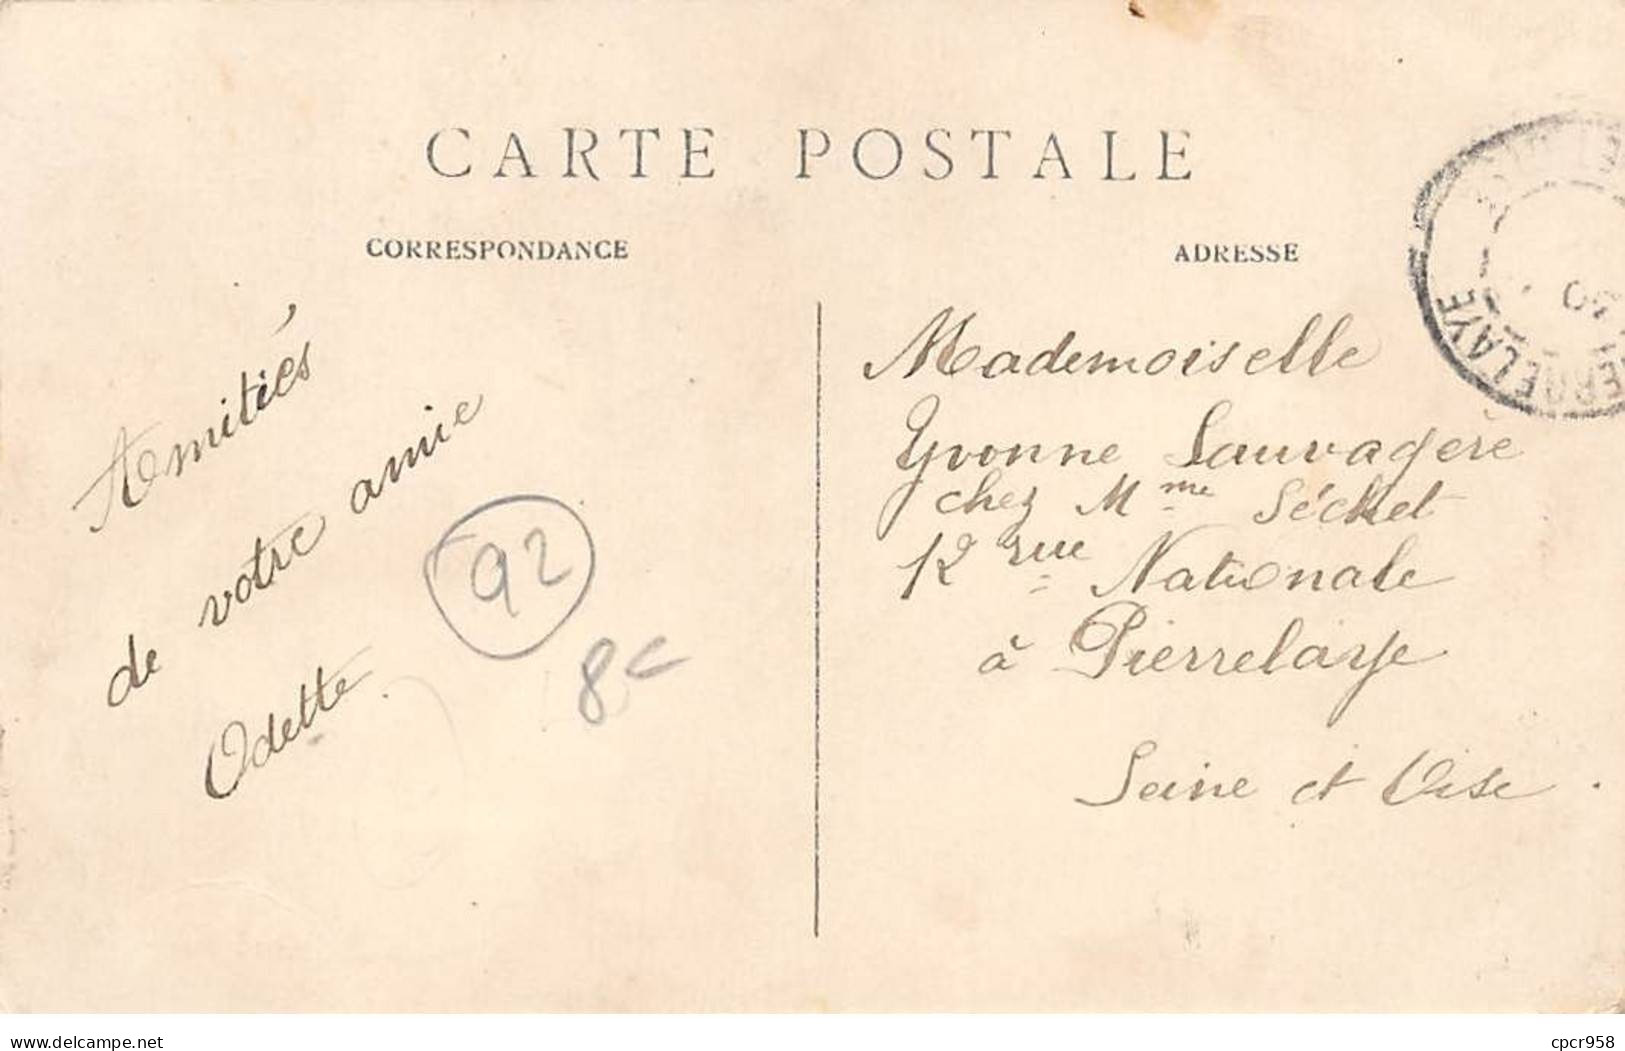 CARTE POSTALE
CORRESPONDANCE
ADRESSE
Amitiés
de votre amie
Odette.
92
8c
Mademoiselle
Yvonne Sauvagere
chez Mme Séchet
12 rue Nationale
à Pierrelaye
Seine et Oise.
delcampe.net
cpcr958